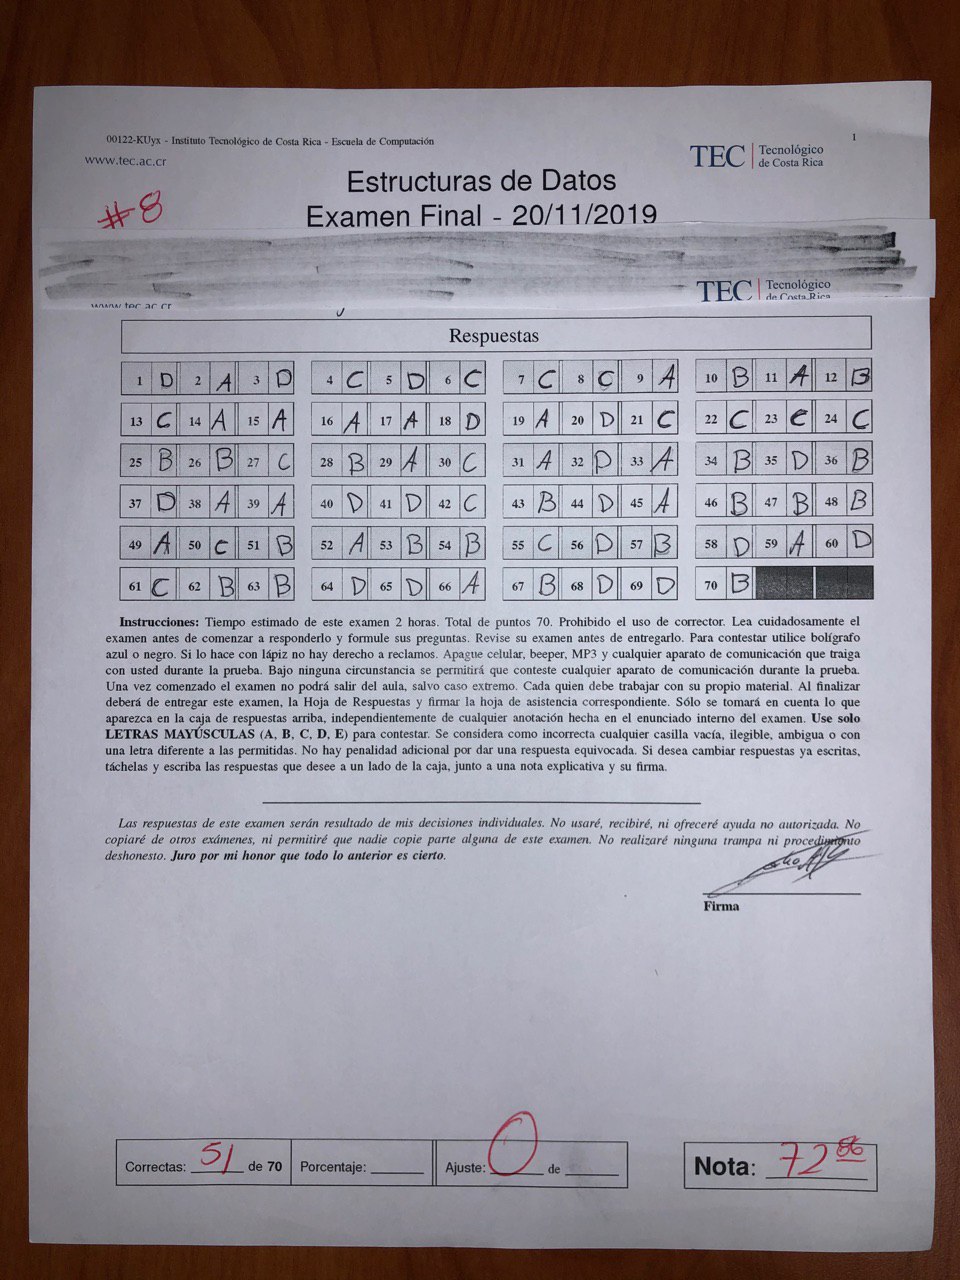 00122-KUyx - Instituto Tecnológico de Costa Rica - Escuela de Computación
1
www.tec.ac.cr
TEC | Tecnológico de Costa Rica
#8
Estructuras de Datos
Examen Final - 20/11/2019
TEC | Tecnológico de Costa Rica
www.tec.ac.cr
Respuestas
1 D 2 A 3 D 4 C 5 D 6 C 7 C 8 C 9 A 10 B 11 A 12 B
13 C 14 A 15 A 16 A 17 A 18 D 19 A 20 D 21 C 22 C 23 C 24 C
25 B 26 B 27 C 28 B 29 A 30 C 31 A 32 D 33 A 34 B 35 D 36 B
37 D 38 A 39 A 40 D 41 D 42 C 43 B 44 D 45 A 46 B 47 B 48 B
49 A 50 C 51 B 52 A 53 B 54 B 55 C 56 D 57 B 58 D 59 A 60 D
61 C 62 B 63 B 64 D 65 D 66 A 67 B 68 D 69 D 70 B
Instrucciones: Tiempo estimado de este examen 2 horas. Total de puntos 70. Prohibido el uso de corrector. Lea cuidadosamente el
examen antes de comenzar a responderlo y formule sus preguntas. Revise su examen antes de entregarlo. Para contestar utilice bolígrafo
azul o negro. Si lo hace con lápiz no hay derecho a reclamos. Apague celular, beeper, MP3 y cualquier aparato de comunicación que traiga
con usted durante la prueba. Bajo ninguna circunstancia se permitirá que conteste cualquier aparato de comunicación durante la prueba.
Una vez comenzado el examen no podrá salir del aula, salvo caso extremo. Cada quien debe trabajar con su propio material. Al finalizar
deberá de entregar este examen, la Hoja de Respuestas y firmar la hoja de asistencia correspondiente. Sólo se tomará en cuenta lo que
aparezca en la caja de respuestas arriba, independientemente de cualquier anotación hecha en el enunciado interno del examen. Use solo
LETRAS MAYÚSCULAS (A, B, C, D, E) para contestar. Se considera como incorrecta cualquier casilla vacía, ilegible, ambigua o con
una letra diferente a las permitidas. No hay penalidad adicional por dar una respuesta equivocada. Si desea cambiar respuestas ya escritas,
táchelas y escriba las respuestas que desee a un lado de la caja, junto a una nota explicativa y su firma.
Las respuestas de este examen serán resultado de mis decisiones individuales. No usaré, recibiré, ni ofreceré ayuda no autorizada. No
copiaré de otros exámenes, ni permitiré que nadie copie parte alguna de este examen. No realizaré ninguna trampa ni procedimiento
deshonesto. Juro por mi honor que todo lo anterior es cierto.
Firma
Correctas: 51 de 70 Porcentaje: ______ Ajuste: 0 de ______ Nota: 72 86